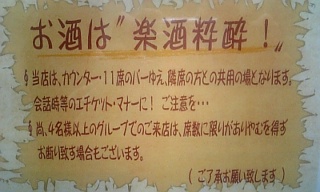 お酒は”楽酒粋酔！〟
§当店は、カウンター・11席のバーゆえ、隣席の方との共用の場となります。
会話時等のエチケット・マナーに！ご注意を…
§尚、4名様以上のグループでのご来店は、席数に限りがおりやむを得ず
お断り致す場合もございます。
（ご了承お願い致します）